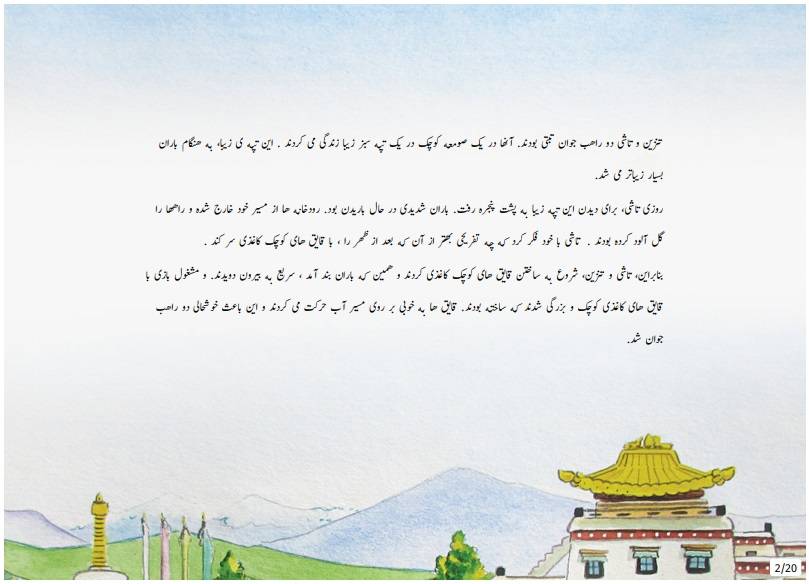 تنزین و تاشی دو راهب جوان تبتی بودند. آنها در یک صومعه کوچک در یک تپه سبز زیبا زندگی می کردند . این تپه ی زیبا، به هنگام باران
بسیار زیباتر می شد.
روزی تاشی، برای دیدن این تپه زیبا به پشت پنجره رفت. باران شدیدی در حال باریدن بود. رودخانه ها از مسیر خود خارج شده و راهها را
گل آلود کرده بودند . تاشی با خود فکر کرد که چه تفریحی بهتر از آن که بعد از ظهر را ، با قایق های کوچک کاغذی سر کند .
بنابراین، تاشی و تنزین، شروع به ساختن قایق های کوچک کاغذی کردند و همین که باران بند آمد ، سریع به بیرون دویدند. و مشغول بازی با
قایق های کاغذی کوچک و بزرگی شدند که ساخته بودند. قایق ها به خوبی بر روی مسیر آب حرکت می کردند و این باعث خوشحالی دو راهب
جوان شد.
2/20